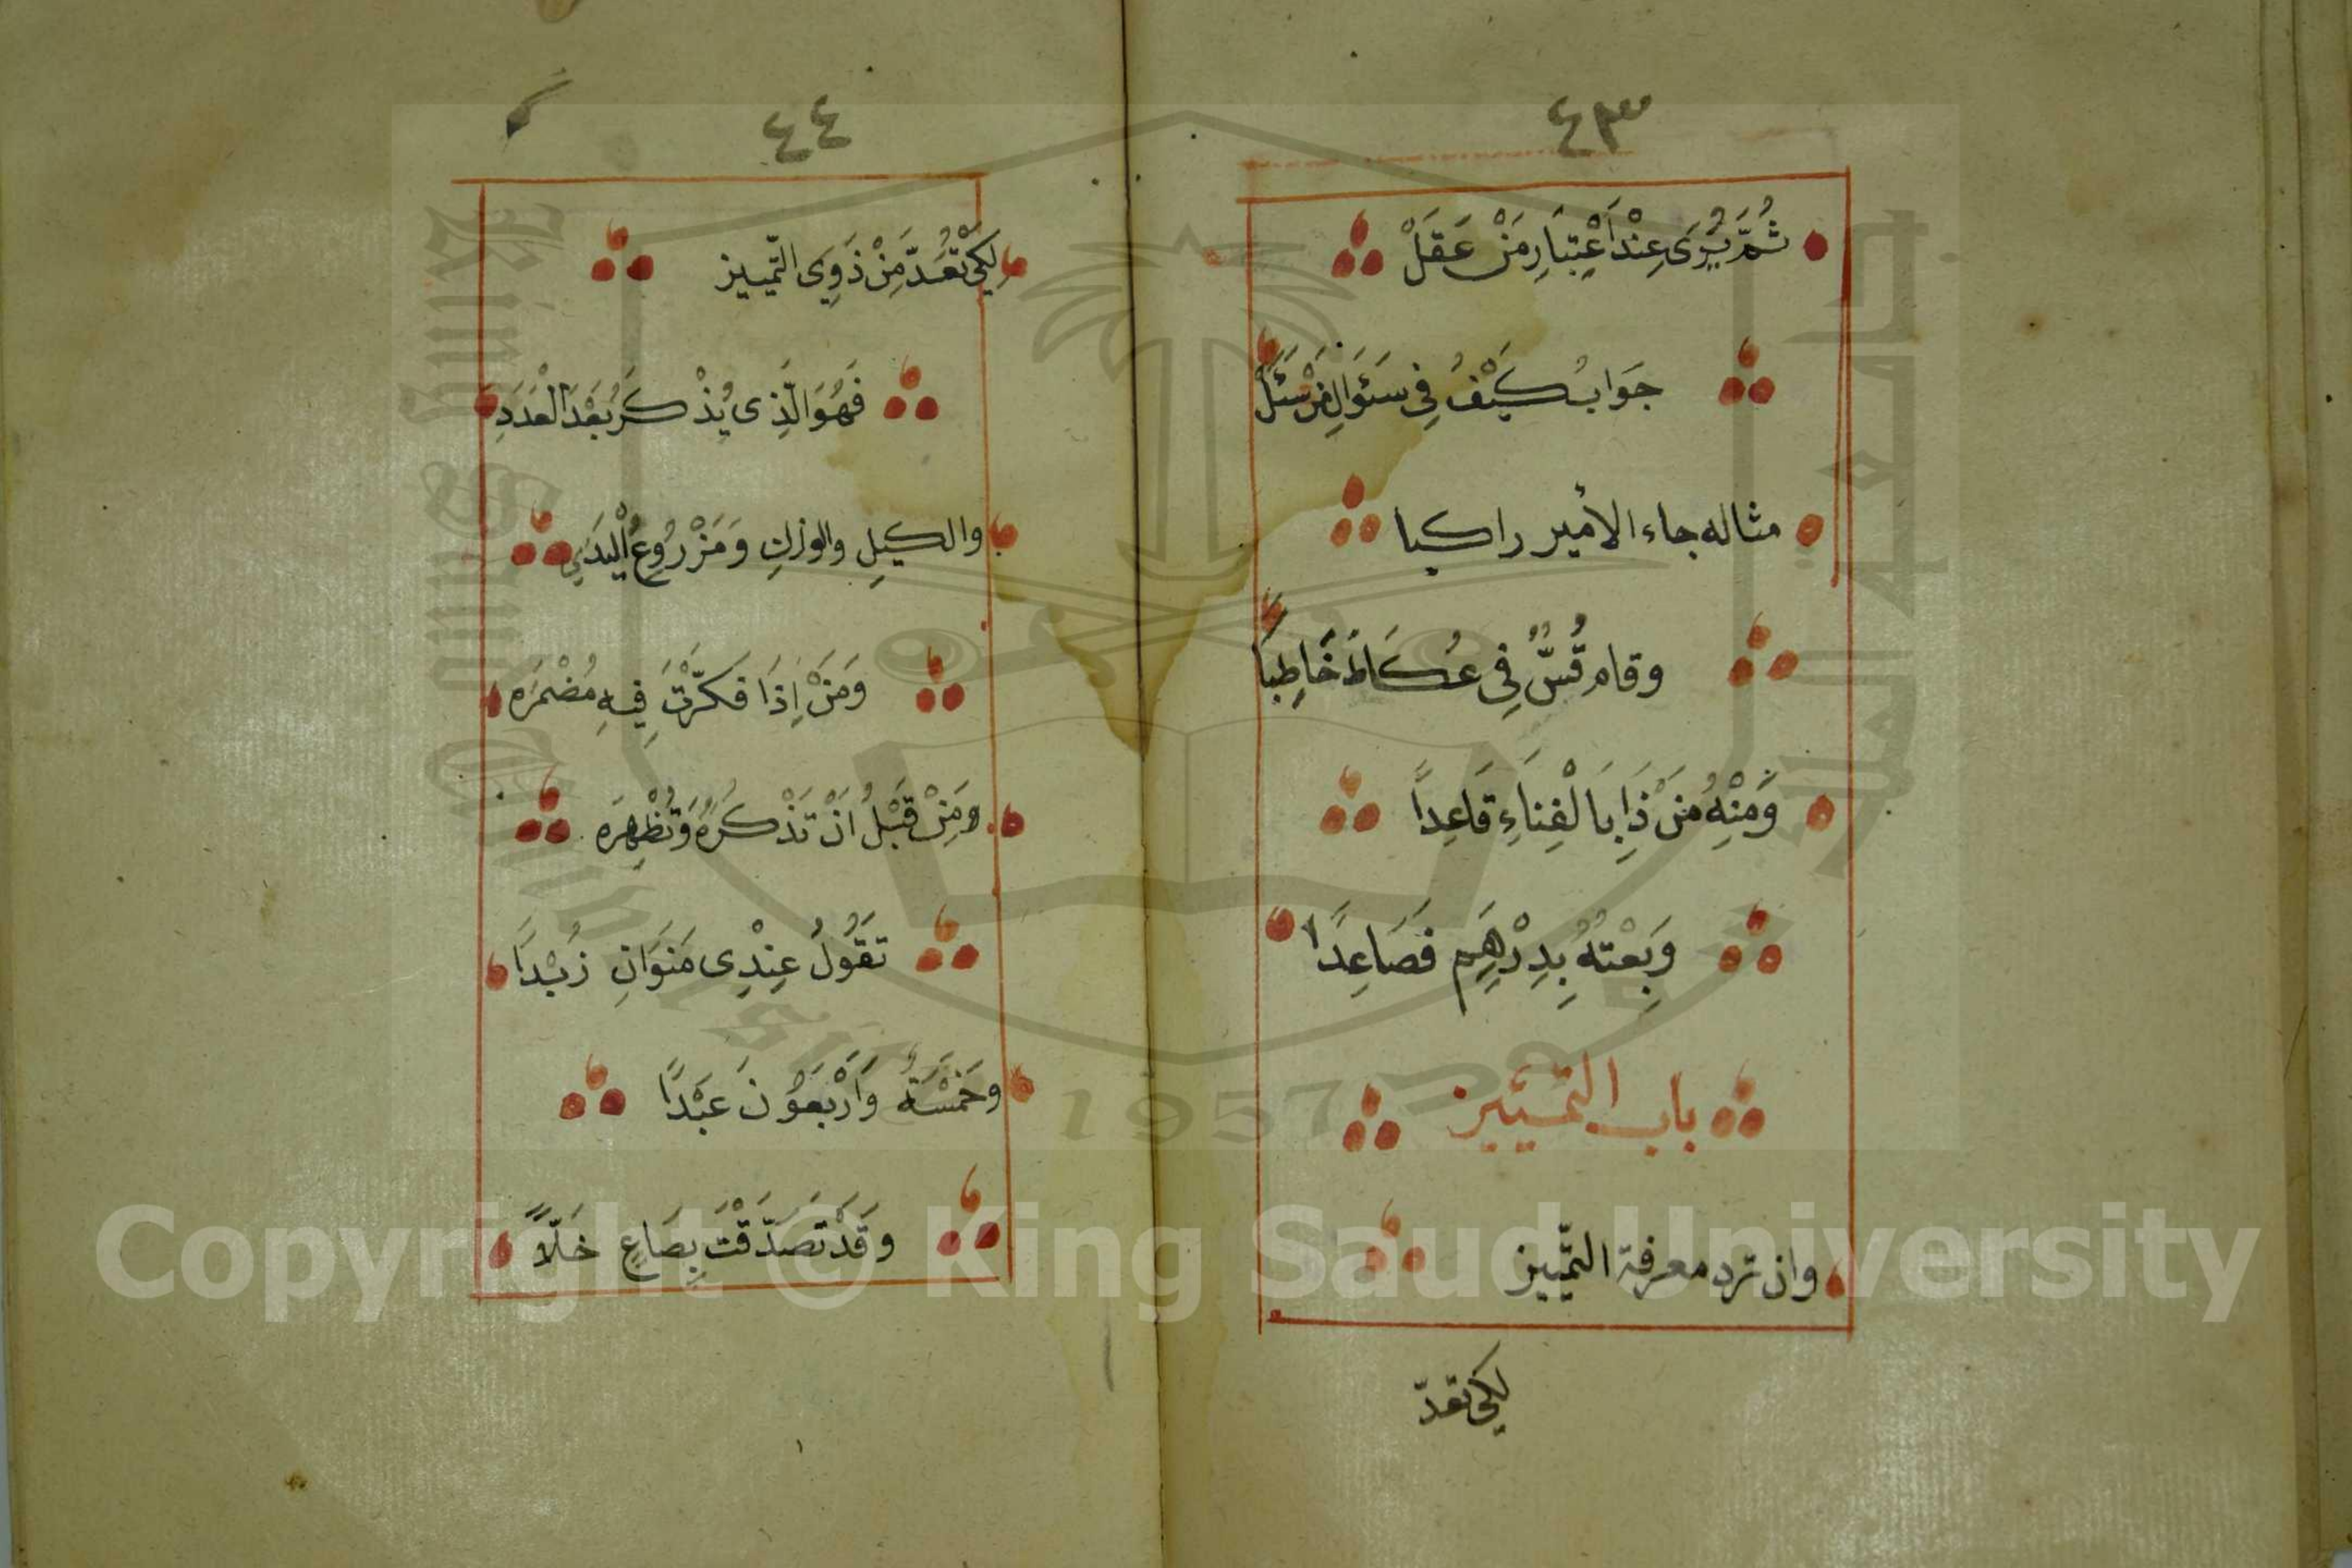 ٤٣
ثُمَّ يُرَى عِنْدَ اعْتِبَارِ مَنْ عَقَلْ
جَوَابُ كَيْفَ فِي سَئَوَالِ مَنْ سَئَلْ
مثاله جاء الأمير راكبا
وقام قُسٌّ فِي عُكَاظَ خَاطِبَا
وَمِنْهُ مَنْ ذَا بِالْفِنَاءِ قَاعِدًا
وَبِعْتُهُ بِدِرْهَمٍ فَصَاعِدًا
باب التَّمْيِيز
وان ترد معرفة التَّمييز
لكي تعدّ
٤٤
لِكَيْ تُعَدَّ مِنْ ذَوِي التَّمييز
فَهُوَ الَّذِى يُذْكَرُ بَعْدَ الْعَدَدِ
والكيلِ والوزنِ وَمَزْرُوعِ الْيَدِ
وَمَنْ اِذَا فَكَّرْتَ فِيهِ مُضْمَرَه
وَمِنْ قَبْلُ اَنْ تَذْكُرَهُ وَتُظْهِرَه
تَقُولُ عِنْدِى مَنَوَانِ زُبْدًا
وَخَمْسَةٌ وَاَرْبَعُونَ عَبْدًا
وَقَدْ تَصَدَّقْتَ بِصَاعٍ خَلَّاً
Copyright © King Saud University
1957